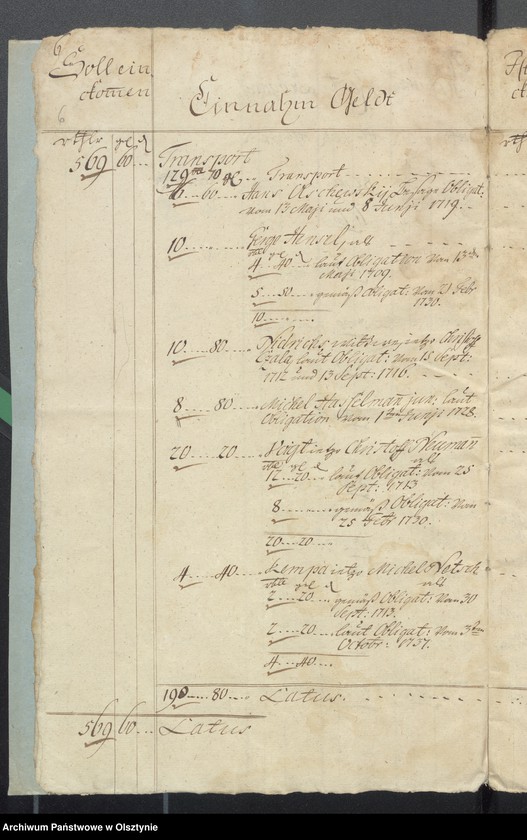 Soll ein
kom̄en
Einnahm Geldt
rthlr gl d
569 60 Transport
129 70 Transport
16 60 Hans Obligat:
vom 13 Maji und 8 Junji 1719.
10 Görge Hensel, als
rthl gl d
4 40 laut Obligation vom 13
Maji 1709.
5 50 gemäß Obligat: vom 21 Febr
1730.
10
10 80 itzo Christoff
laut Obligat: vom 15 Sept:
1712 und 13 Sept: 1716.
8 80 Michel Hasselman̄ jun: laut
Obligation vom 1ten Junji 1728.
20 20 Voigt itzo Christoff Neuman̄
als
rthl gl d
12 20 laut Obligat: vom 25
Sept: 1713
8 gemäß Obligat: vom
25 Febr 1730.
20 20
4 40 Kempa itzo Michel
als
rthl gl d
2 20 gemäß Obligat: vom 30
Sept: 1713.
2 20 laut Obligat: vom 3ten
Octobr: 1737.
4 40
190 80 Latus.
569 60 Latus
Archiwum Państwowe w Olsztynie